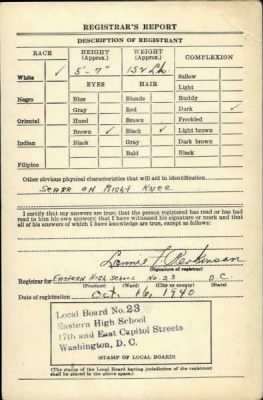 REGISTRAR'S REPORT
DESCRIPTION OF REGISTRANT
RACE HEIGHT (Approx.) WEIGHT (Approx.) COMPLEXION
White ✓ 5'-7" 152 Lb Sallow
EYES HAIR Light
Negro Blue Blonde Ruddy
Gray Red Dark ✓
Oriental Hazel Brown Freckled
Brown ✓ Black ✓ Light brown
Indian Black Gray Dark brown
Bald Black
Filipino
Other obvious physical characteristics that will aid in identification
SCARR ON RIGHT KNEE
I certify that my answers are true; that the person registered has read or has had
read to him his own answers; that I have witnessed his signature or mark and that
all of his answers of which I have knowledge are true, except as follows:
(Signature of registrar)
Registrar for EASTERN HIGH SCHOOL No. 23 D.C.
(Precinct) (Ward) (City or county) (State)
Date of registration Oct. 16, 1940
Local Board No. 23
Eastern High School
17th and East Capitol Streets
Washington, D. C.
(STAMP OF LOCAL BOARD)
(The stamp of the Local Board having jurisdiction of the registrant
shall be placed in the above space.)